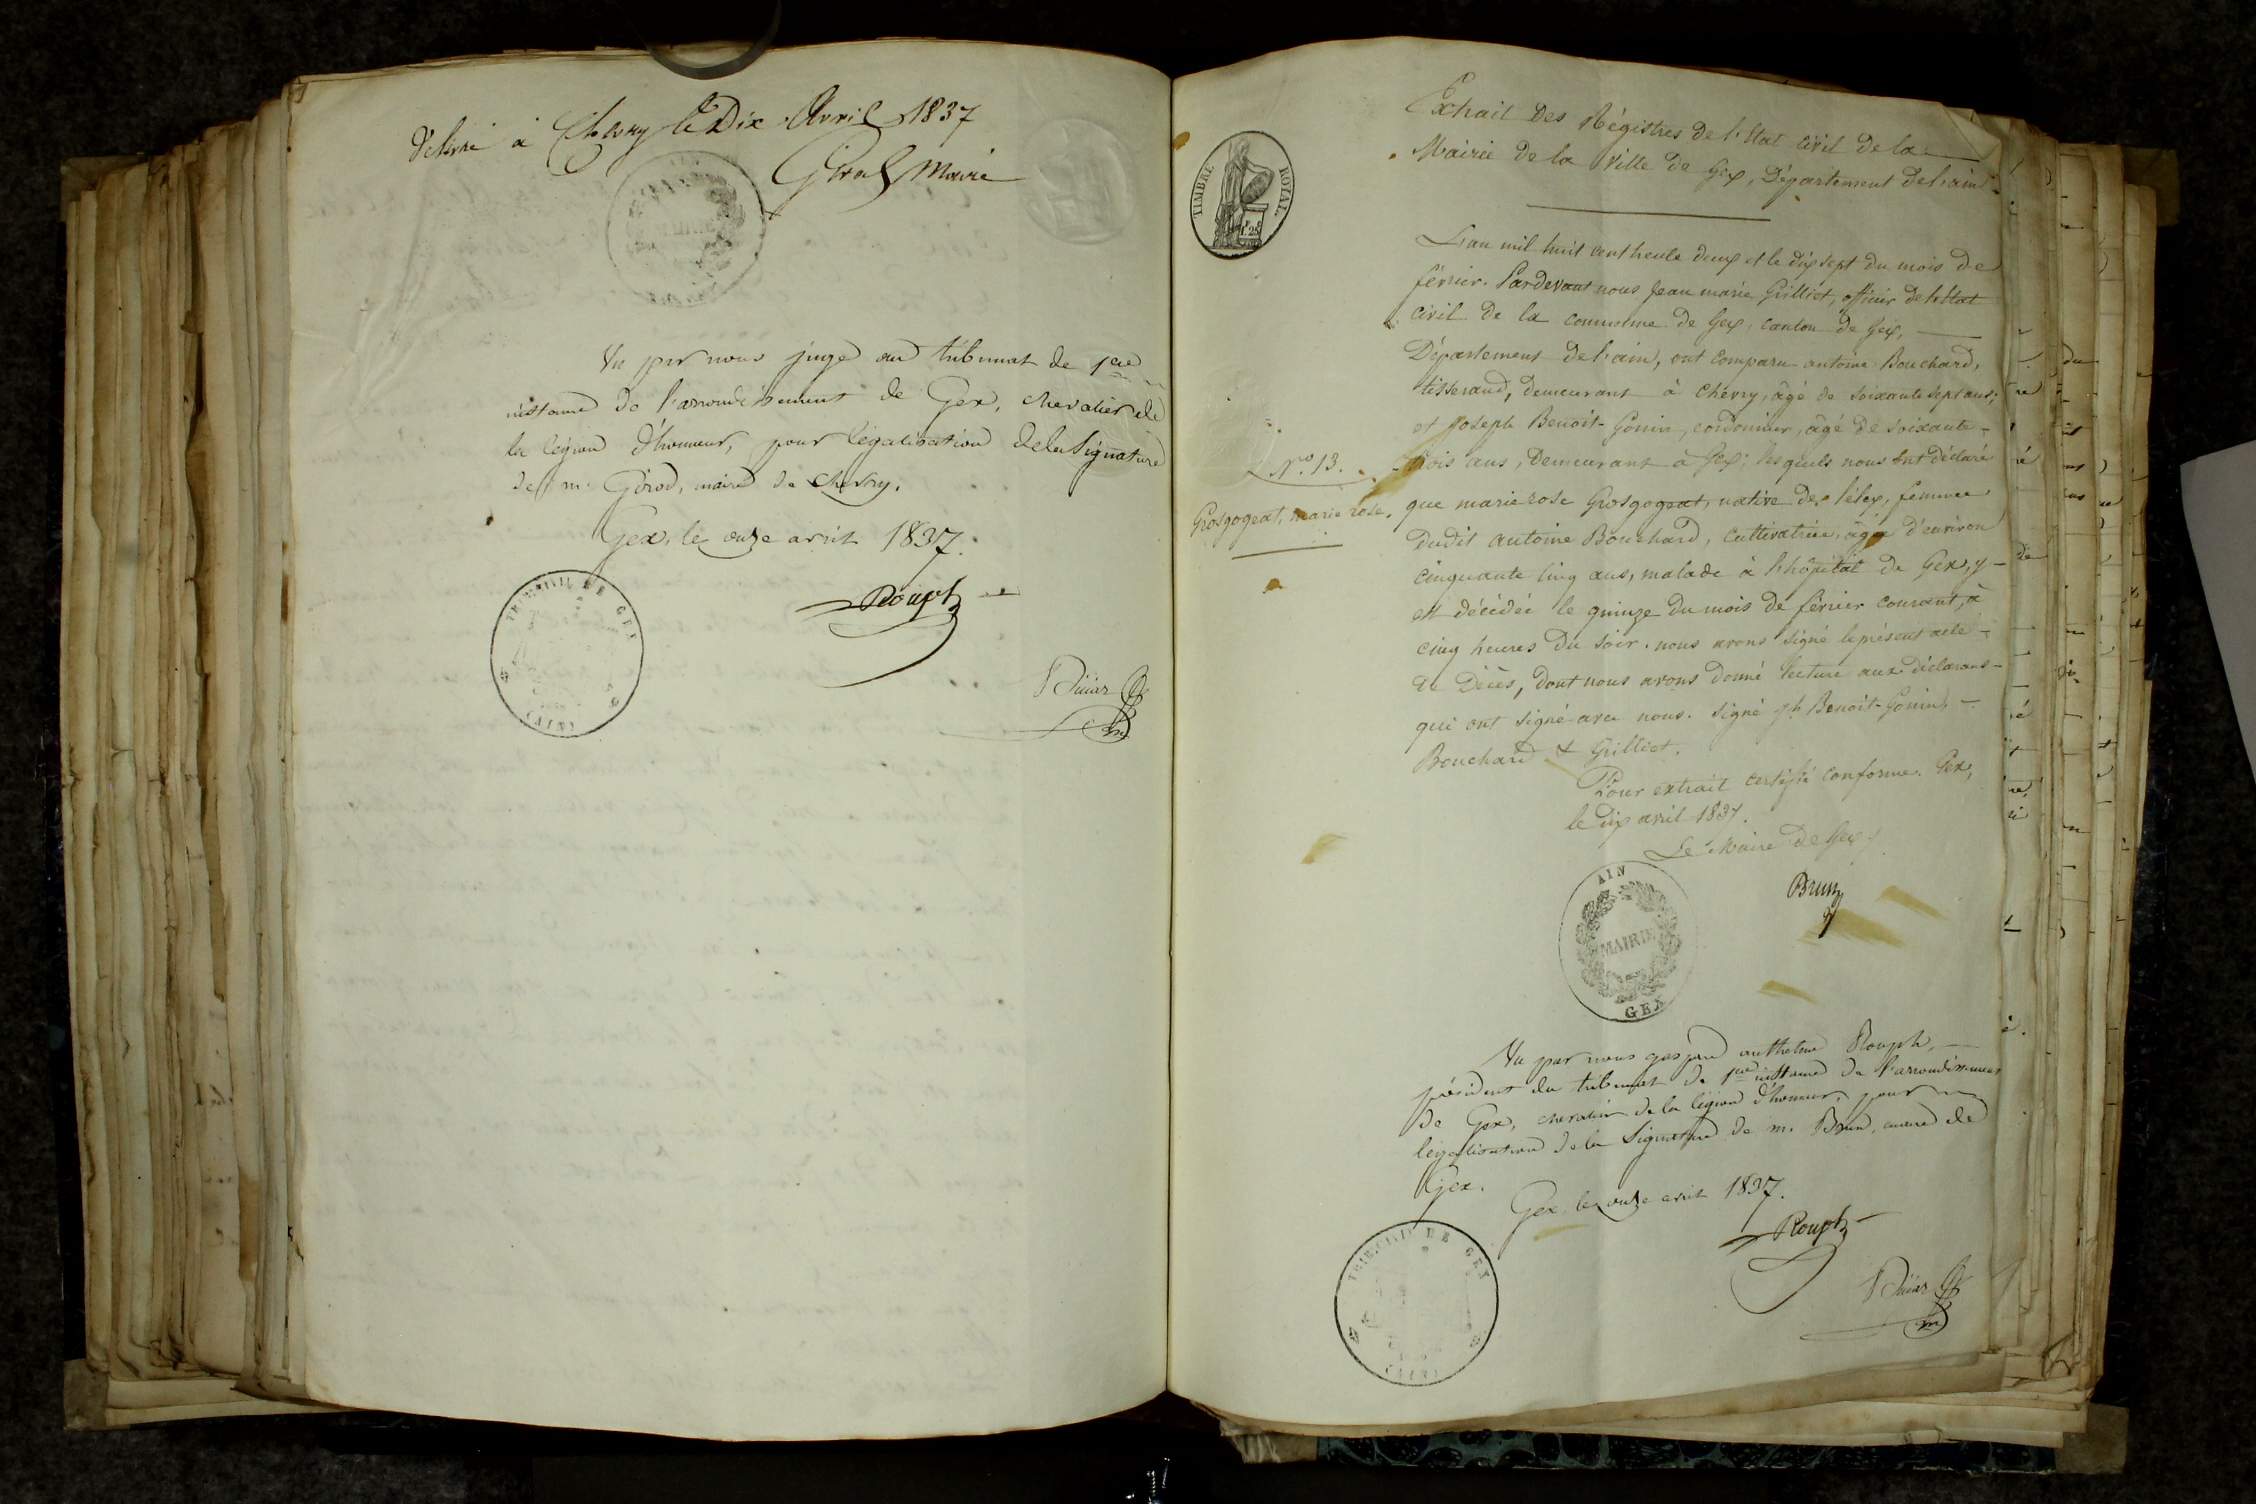 Délivré à Chevry le Dix Avril 1837
Girod Maire
Vu par nous juge au tribunal de 1ere
instance de l'arrondissement de Gex, chevalier de
la légion d'honneur, pour légalisation de la Signature
de m. Girod, maire de Chevry.
Gex, le onze avril 1837.
Rouph
TRIB. CIVIL DE GEX
(AIN)
TIMBRE ROYAL
1f 25c
Extrait Des Régistres de l'Etat Civil de la
Mairie de la Ville de Gex, Département de l'ain.
L'an mil huit cent trente deux et le dix sept du mois de
février. Pardevant nous Jean marie Grilliet, officier de l'Etat
civil de la commune de Gex, canton de Gex,
Département de l'ain, ont comparu antoine Bouchard,
tisserand, demeurant à Chevry, âgé de soixante sept ans;
et Joseph Benoit-Gonin, cordonnier, âgé de soixante-
trois ans, Demeurant à Gex; lesquels nous ont déclaré
N.o 13.
Grosgogeat, marie rose.
que marie rose Grosgogeat, native de lélex, femme
dudit antoine Bouchard, cultivatrice, âgée d'environ
cinquante cinq ans, malade à l'hôpital de Gex, y
est décédée le quinze du mois de février courant, à
cinq heures du soir. nous avons signé le présent acte
de Décès, dont nous avons donné lecture aux déclarans
qui ont signé avec nous. Signé jh Benoit-Gonin,
Bouchard & Grilliet.
Pour extrait certifié conforme. Gex,
le dix avril 1837.
Le Maire de Gex
Brun
AIN
MAIRIE
GEX
Vu par nous gaspard anthelme Rouph,
président du tribunal de 1ere instance de l'arrondissement
de Gex, chevalier de la légion d'honneur, pour
légalisation de la Signature de m. Brun, maire de
Gex.
Gex, le onze avril 1837.
Rouph
TRIB. CIVIL DE GEX
(AIN)